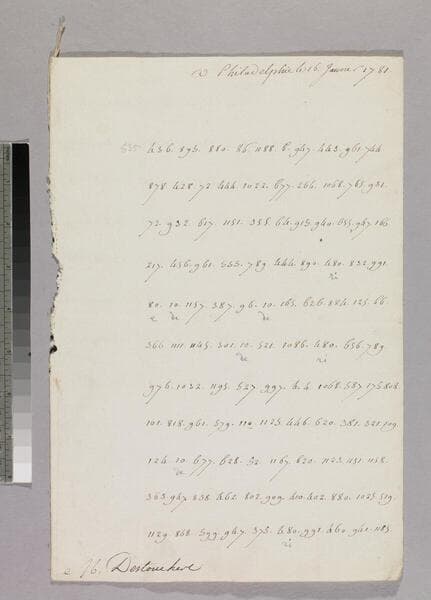 a Philadelphie le 16. Janvier 1781.
535 436. 895. 880. 86. 1188. 6. 947. 443. 961. 744
878. 428. 72. 444. 1022. 677. 266. 1068. 765. 931.
72. 932. 617. 1151. 355. 64. 915. 940. 655. 967. 165
217. 456. 961. 553. 789. 444. 890. 480. 832. 991.
ri
80. 10. 1157. 387. 96. 10. 165. 626. 884. 125. 66.
e de de
366. 1111. 1145. 301. 10. 521. 1086. 480. 656. 789.
de ri
976. 1032. 1195. 527. 997. 1068. 587. 175. 808.
101. 818. 961. 579. 110. 1125. 446. 620. 381. 321. 109.
124. 10. 677. 628. 52. 1167. 620. 1123. 1151. 1158.
de
363. 947. 838. 462. 802. 909. 410. 402. 880. 1025. 519.
1129. 868. 599. 947. 375. 480. 991. 460. 941. 1185.
ri
Destouches